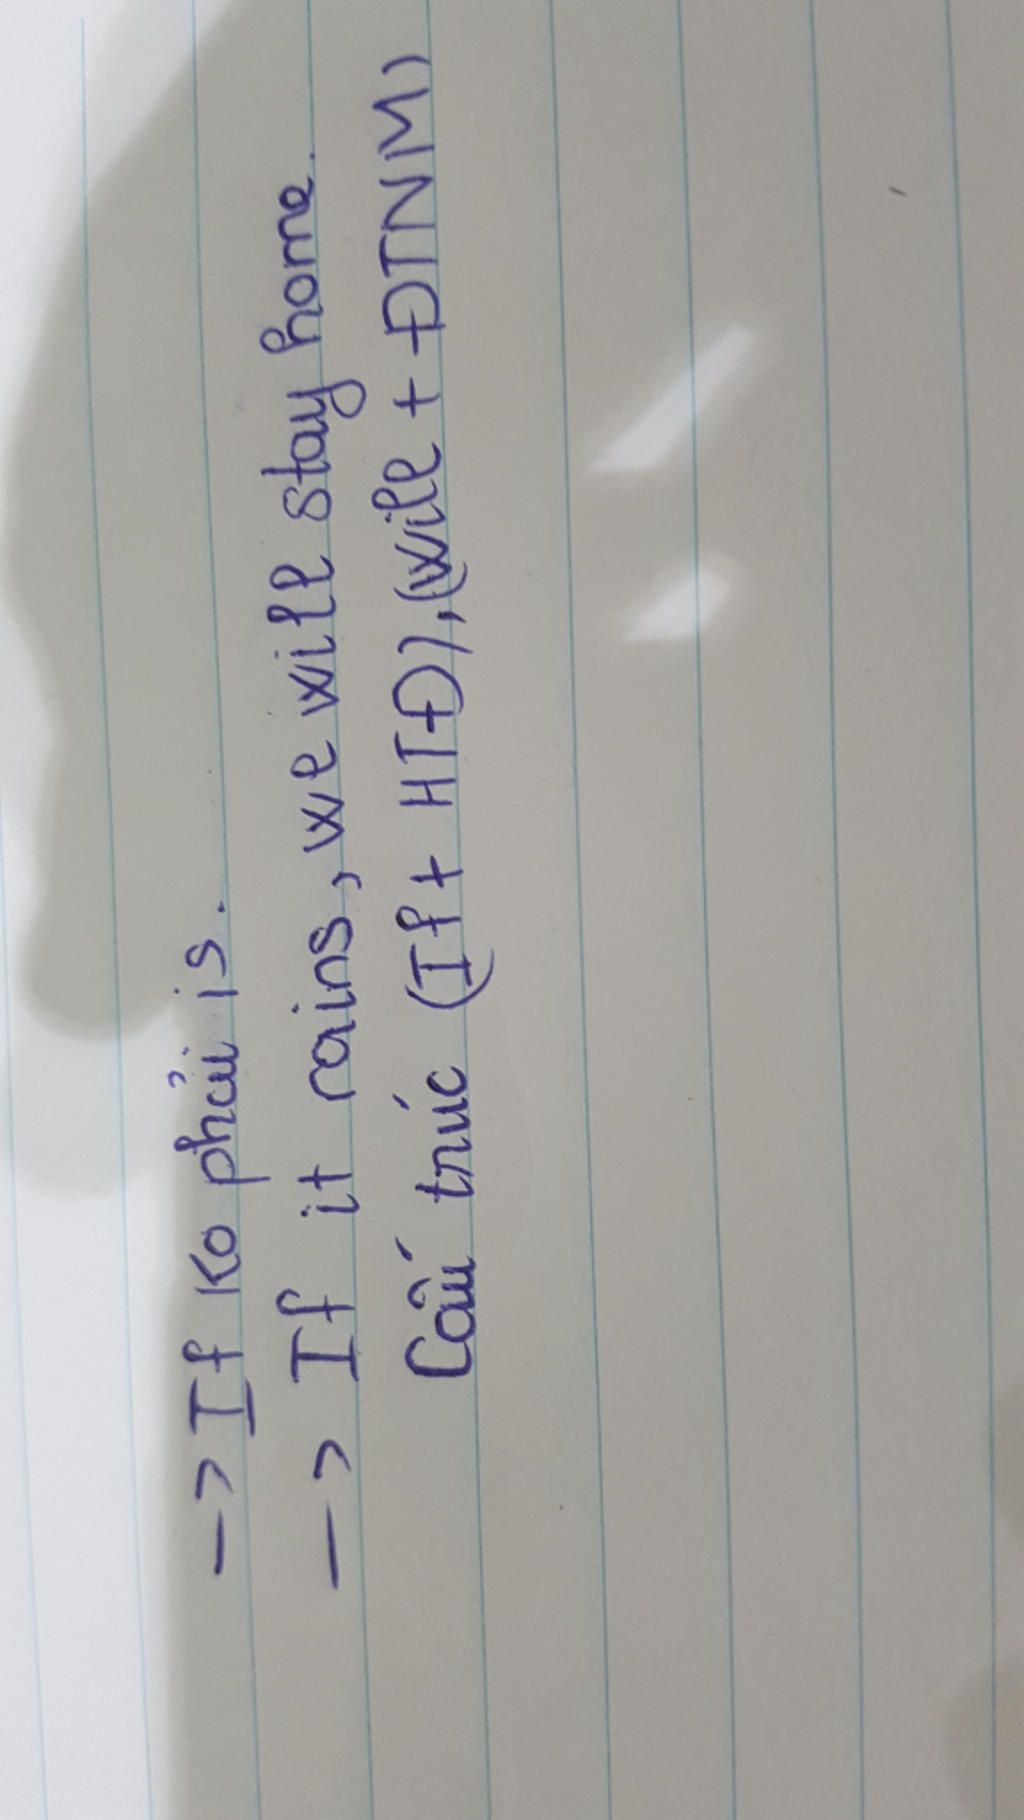 -> If ko phải is.
-> If it rains, we will stay home.
Cấu trúc (If + HTĐ), (will + ĐTNM)